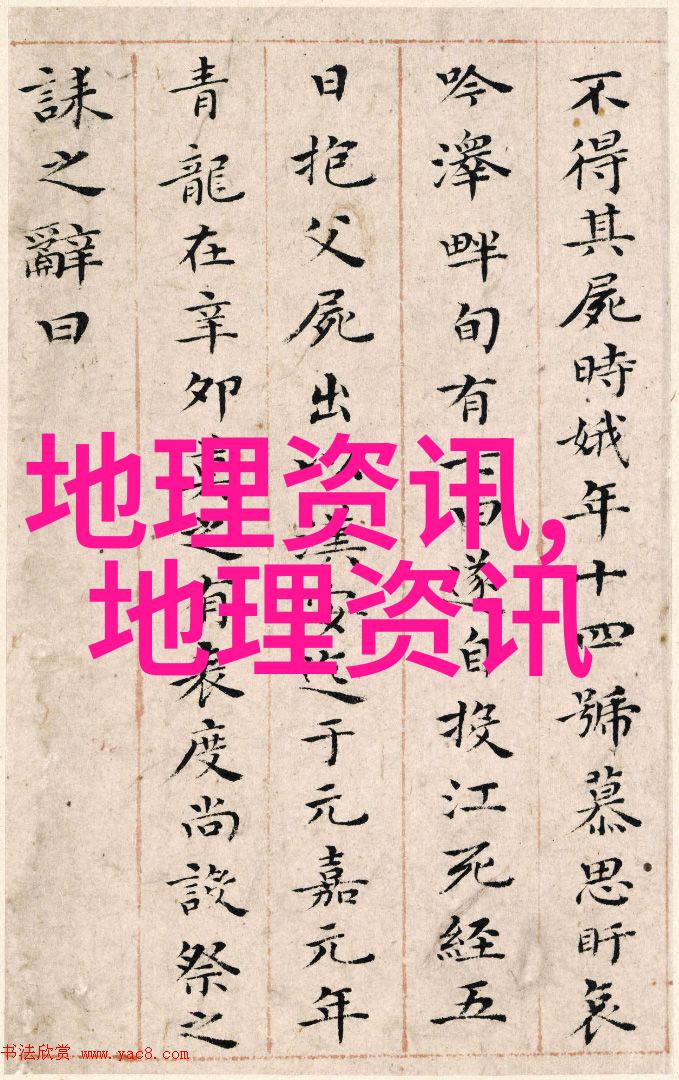 不得其屍時娥年十四號慕思盱哀
吟澤畔旬有遂自投江死經五
日抱父屍出以漢安迄于元嘉元年
青龍在辛夘莫之有表度尚設祭之
誄之辭曰
地理资讯,
地理资讯
书法欣赏 www.yac8.com